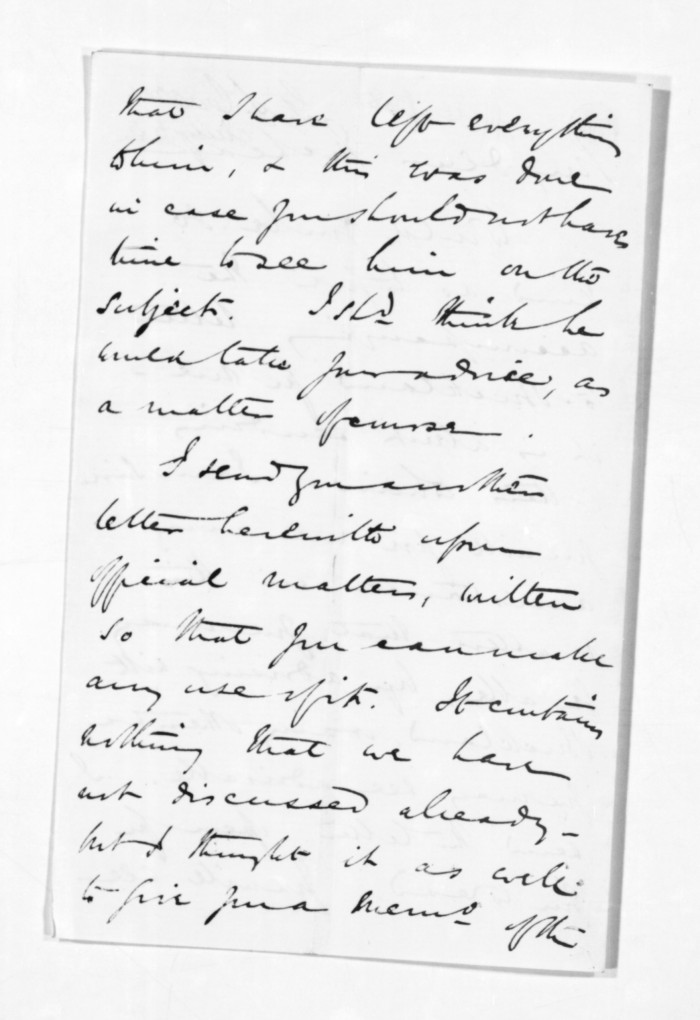 that I have left everything
to him, & this was done
in case you should not have
time to see him on the
subject. I shd. think he
would take your advice, as
a matter of course.
I send you another
letter herewith upon
official matters, written
so that you can make
any use of it. It contains
nothing that we have
not discussed already -
but I thought it as well
to give you a memo. of the